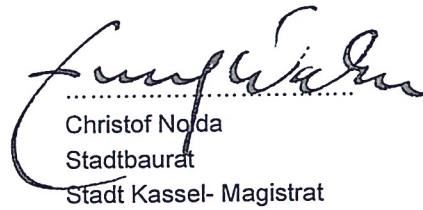 Christof Nolda
Stadtbaurat
Stadt Kassel- Magistrat